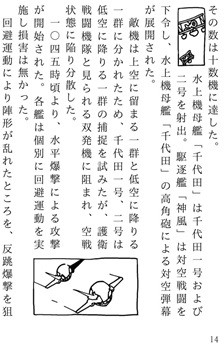 その数は十数機に達した。
水上機母艦「千代田」は千代田一号および
二号を射出。駆逐艦「神風」は対空戦闘を
下令し、水上機母艦「千代田」の高角砲による対空弾幕
が展開された。
敵機は上空に留まる一群と低空に降りる
一群に分かれたため、千代田一号、二号は
低空に降りる一群の捕捉を試みたが、護衛
戦闘機隊と見られる双発機に阻まれ、空戦
状態に陥り分散した。
一〇四五時頃より、水平爆撃による攻撃
が開始された。各艦は個別に回避運動を実
施し損害は無かった。
回避運動により陣形が乱れたところを、反跳爆撃を狙
14